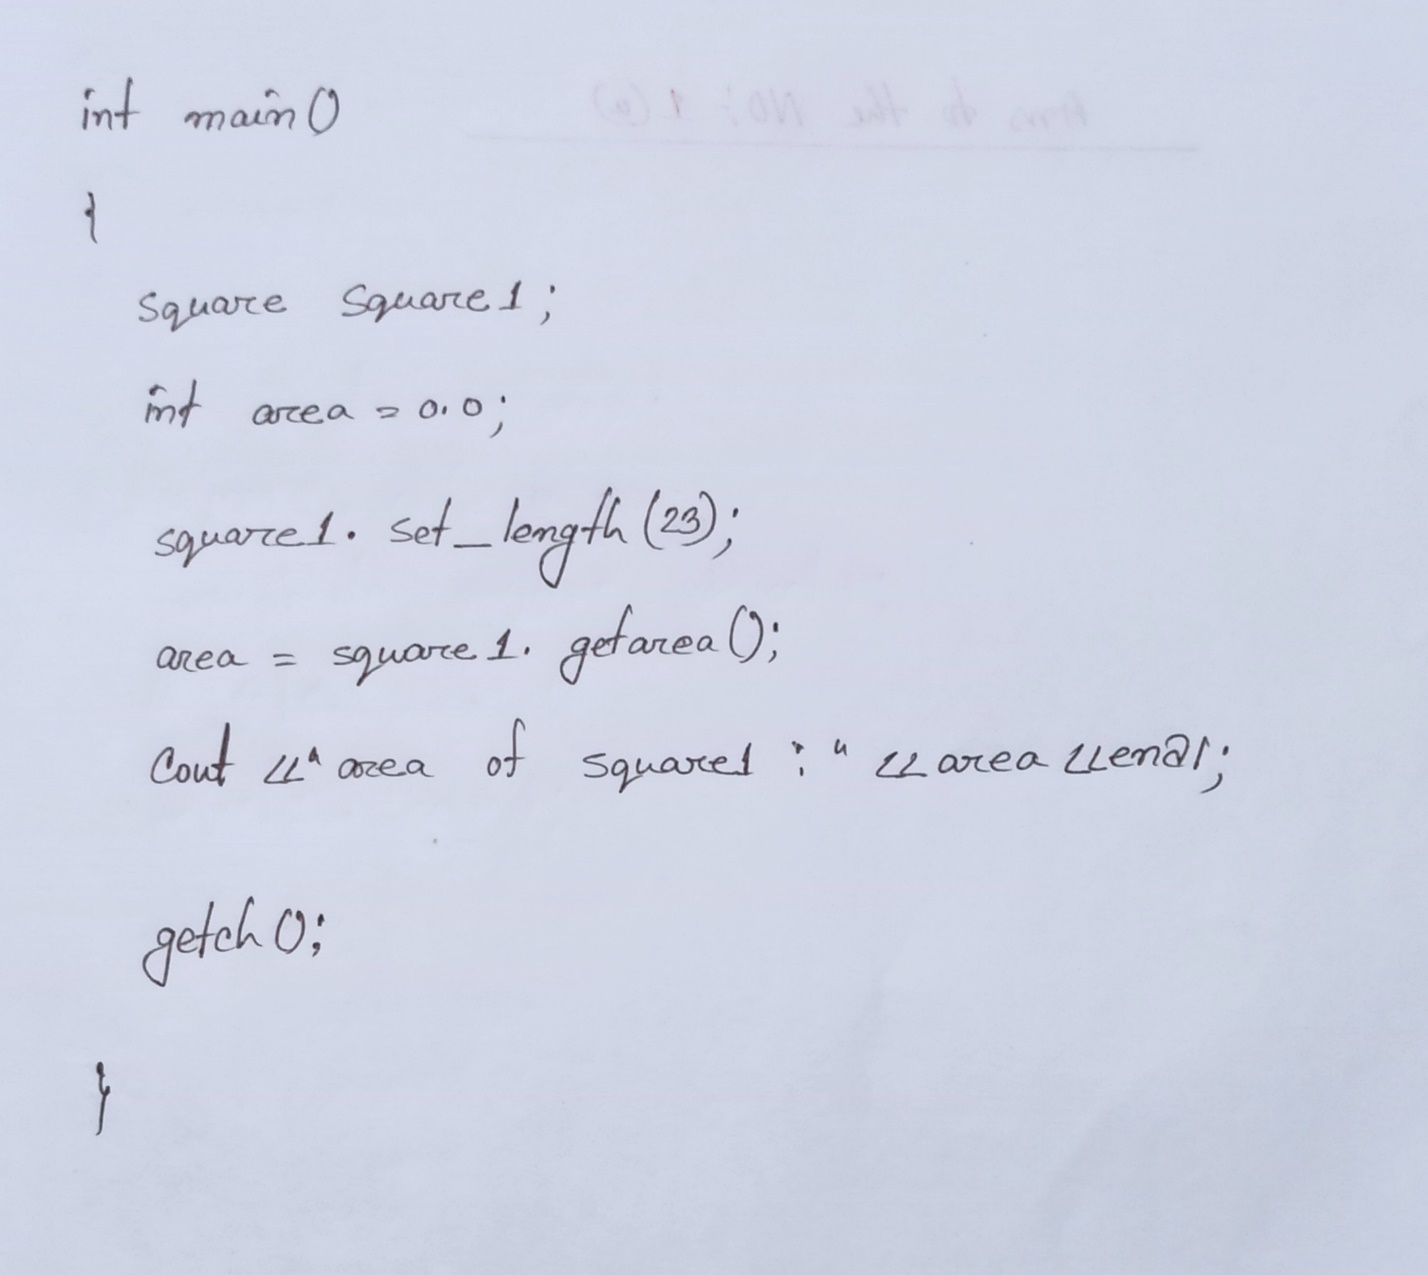 int main()
{
square square1;
int area = 0.0;
square1. set_length (23);
area = square1. getarea ();
Cout <<" area of square1 : " << area <<endl;
getch ();
}